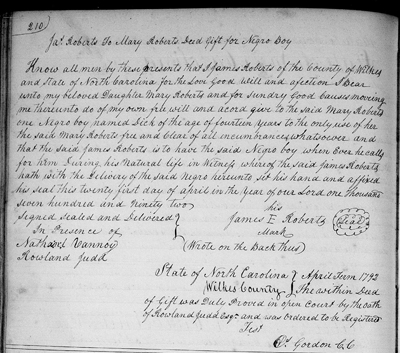 210
Jas. Roberts To Mary Roberts Deed Gift for Negro Boy
Know all men by these presents that I James Roberts of the County of Wilkes
and State of North Carolina for the Love Good will and afection I Bear
unto my beloved Daughter Mary Roberts and for sundry Good Causes moving
me thereunto do of my own free will and acord give to the said Mary Roberts
one Negro boy named Dick of the age of fourteen years to the only use of her
the said Mary Roberts free and Clear of all incumbrances whatsoever and
that the said James Roberts is to have the said Negro boy when Ever he calls
for him During his Natural life in Witness whereof the said James Roberts
hath with the Delivery of the said Negro hereunto set his hand and affixed
his seal this twenty first day of april in the Year of our Lord one thousand
seven hundred and Ninety two
Signed sealed and Delivered
In Presence of
Nathael Vannoy
Rowland Judd
his
James E Roberts Seal
Mark
(Wrote on the Back thus)
State of North Carolina } April Term 1792
Wilkes County } the within Deed
of Gift was Duly Proved in open Court by the oath
of Rowland Judd Esqr and was ordered to be Registered
Test
Gordon CC